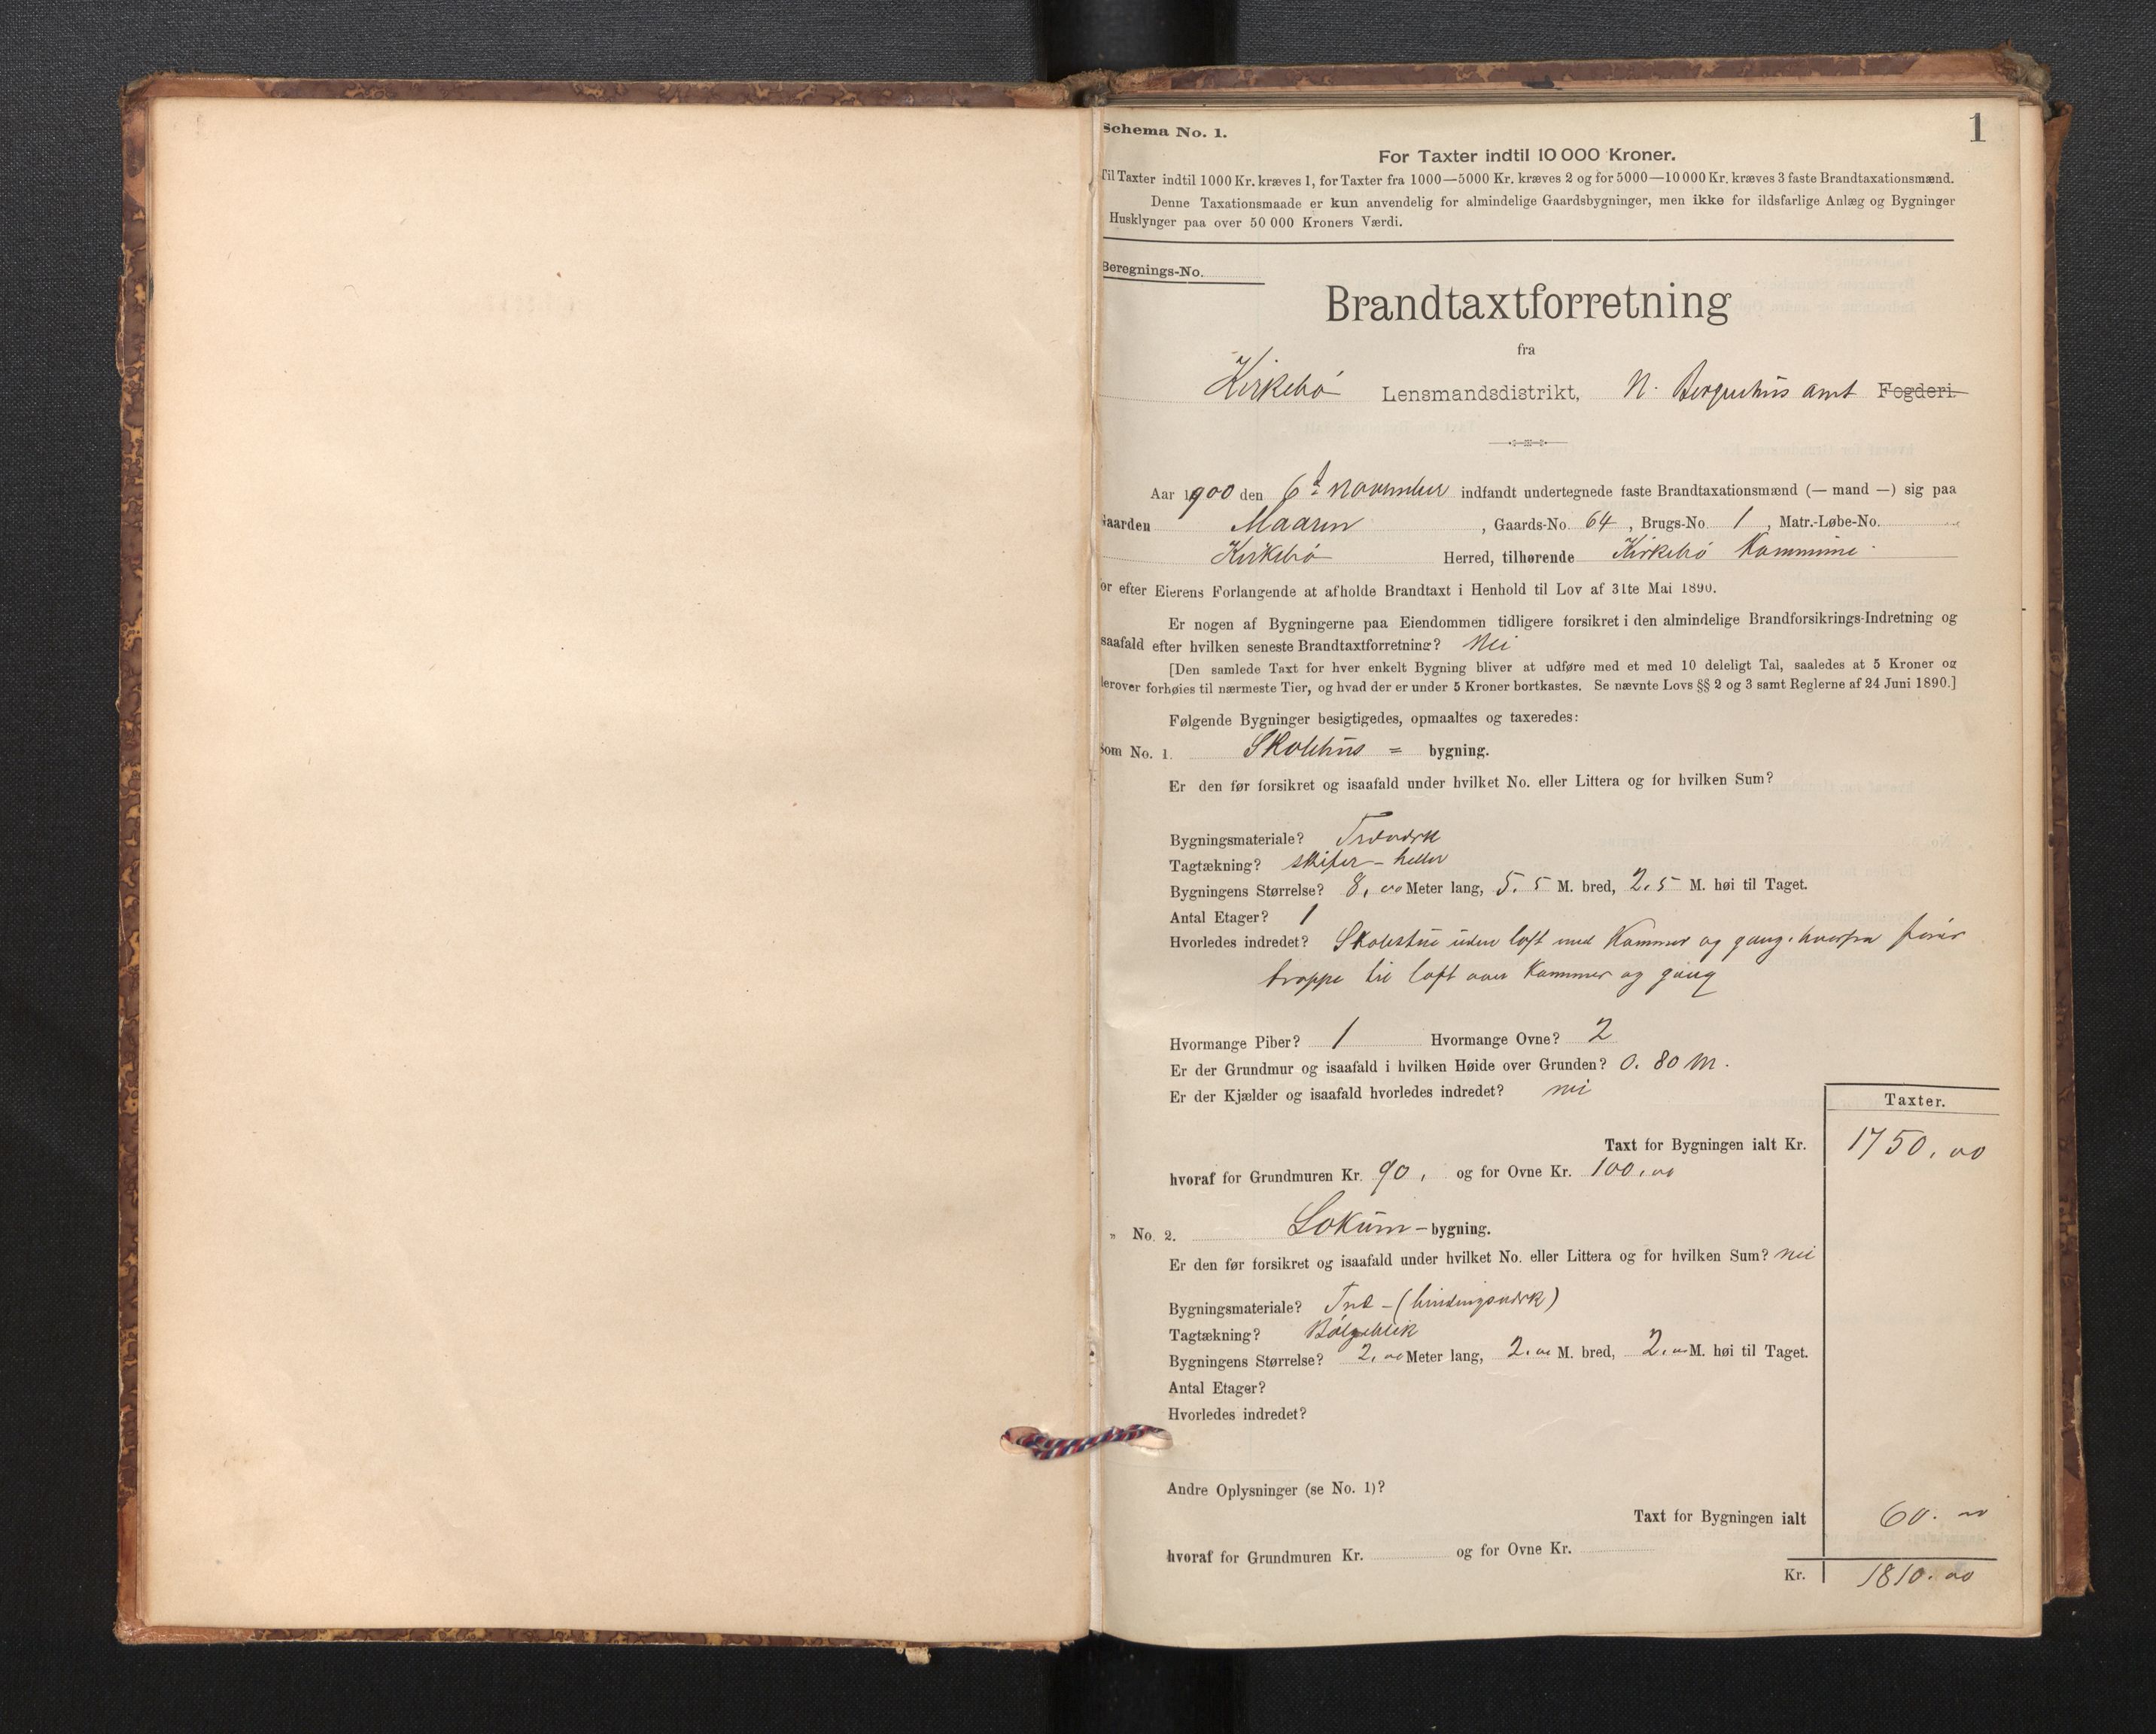 1
Schema No. 1.
For Taxter indtil 10 000 Kroner.
Til Taxter indtil 1000 Kr. kræves 1, for Taxter fra 1000—5000 Kr. kræves 2 og for 5000—10 000 Kr. kræves 3 faste Brandtaxationsmænd.
Denne Taxationsmaade er kun anvendelig for almindelige Gaardsbygninger, men ikke for ildsfarlige Anlæg og Bygninger
Husklynger paa over 50 000 Kroners Værdi.
Beregnings-No.
Brandtaxtforretning
fra
Kirkebö Lensmandsdistrikt, N. Bergenhus amt Fogderi.
Aar 1900 den 6t november indfandt undertegnede faste Brandtaxationsmænd (— mand —) sig paa
Gaarden Maaren, Gaards-No. 64, Brugs-No. 1, Matr.-Løbe-No.
Kirkebö Herred, tilhørende Kirkebö Kommune.
for efter Eierens Forlangende at afholde Brandtaxt i Henhold til Lov af 31te Mai 1890.
Er nogen af Bygningerne paa Eiendommen tidligere forsikret i den almindelige Brandforsikrings-Indretning og
isaafald efter hvilken seneste Brandtaxtforretning? Nei
[Den samlede Taxt for hver enkelt Bygning bliver at udføre med et med 10 deleligt Tal, saaledes at 5 Kroner og
derover forhøies til nærmeste Tier, og hvad der er under 5 Kroner bortkastes. Se nævnte Lovs §§ 2 og 3 samt Reglerne af 24 Juni 1890.]
Følgende Bygninger besigtigedes, opmaaltes og taxeredes:
Som No. 1. Skolehus = bygning.
Er den før forsikret og isaafald under hvilket No. eller Littera og for hvilken Sum?
Bygningsmateriale? Træværk
Tagtækning? skifer-heller
Bygningens Størrelse? 8,00 Meter lang, 5.5 M. bred, 2.5 M. høi til Taget.
Antal Etager? 1
Hvorledes indredet? Skolestue uden loft med Kammer og gang, hvorfra fører
trappe til loft over Kammer og gang
Hvormange Piber? 1 Hvormange Ovne? 2
Er der Grundmur og isaafald i hvilken Høide over Grunden? 0.80 m.
Er der Kjælder og isaafald hvorledes indredet? nei
Taxter.
Taxt for Bygningen ialt Kr. 1750,00
hvoraf for Grundmuren Kr. 90, og for Ovne Kr. 100,00
" No. 2. Lokum-bygning.
Er den før forsikret og isaafald under hvilket No. eller Littera og for hvilken Sum? nei
Bygningsmateriale? Træ-(bindingsværk)
Tagtækning? Bölgeblik
Bygningens Størrelse? 2,00 Meter lang, 2.00 M. bred, 2.00 M. høi til Taget.
Antal Etager?
Hvorledes indredet?
Andre Oplysninger (se No. 1)?
Taxt for Bygningen ialt 60.00
hvoraf for Grundmuren Kr. og for Ovne Kr.
Kr. 1810.00